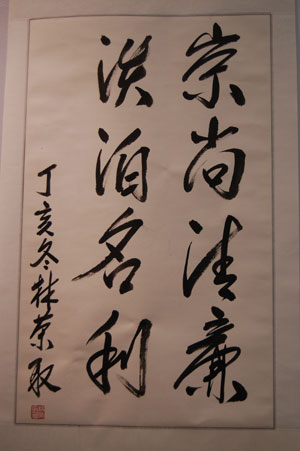 崇尚清廉
淡泊名利
丁亥冬林荣取